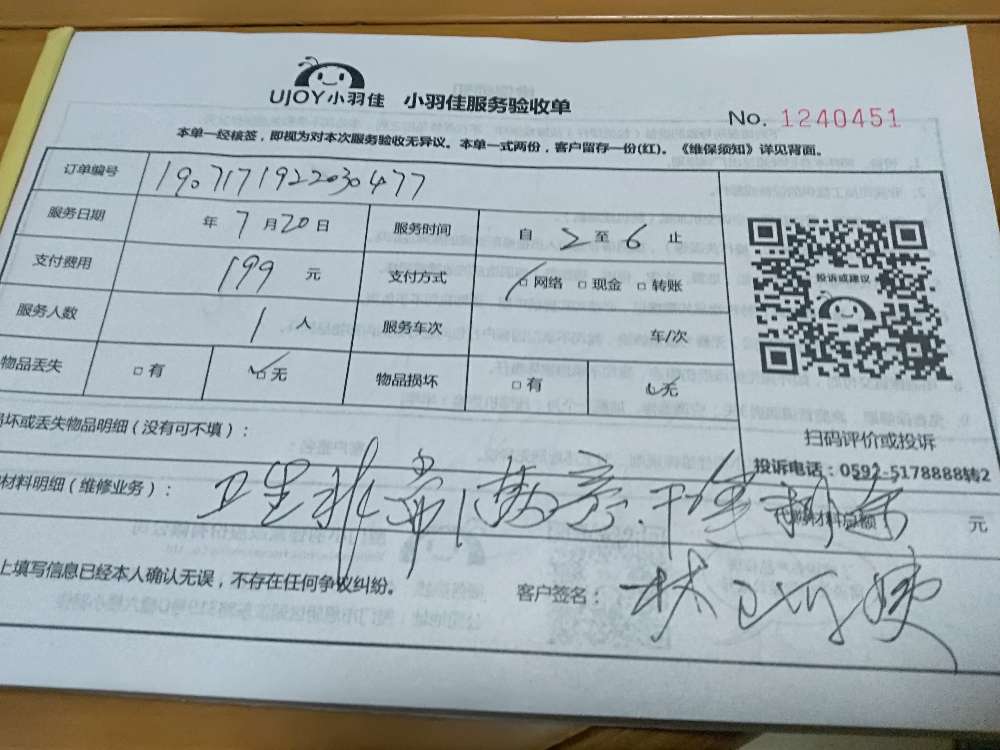 UJOY小羽佳 小羽佳服务验收单
No. 1240451
本单一经核签，即视为对本次服务验收无异议。本单一式两份，客户留存一份(红)。《维保须知》详见背面。
订单编号 1907171922030477
服务日期 年 7 月 20 日 服务时间 自 2 至 6 止
支付费用 199 元 支付方式 □ 网络 □ 现金 □ 转账
服务人数 1 人 服务车次 车/次
物品丢失 □ 有 ☑ 无 物品损坏 □ 有 ☑ 无
投诉或建议
扫码评价或投诉
投诉电话：0592-5178888转2
损坏或丢失物品明细（没有可不填）：
材料明细（维修业务）： 卫生非常满意 干净
代购材料总额 元
上填写信息已经本人确认无误，不存在任何争议纠纷。
客户签名： 林